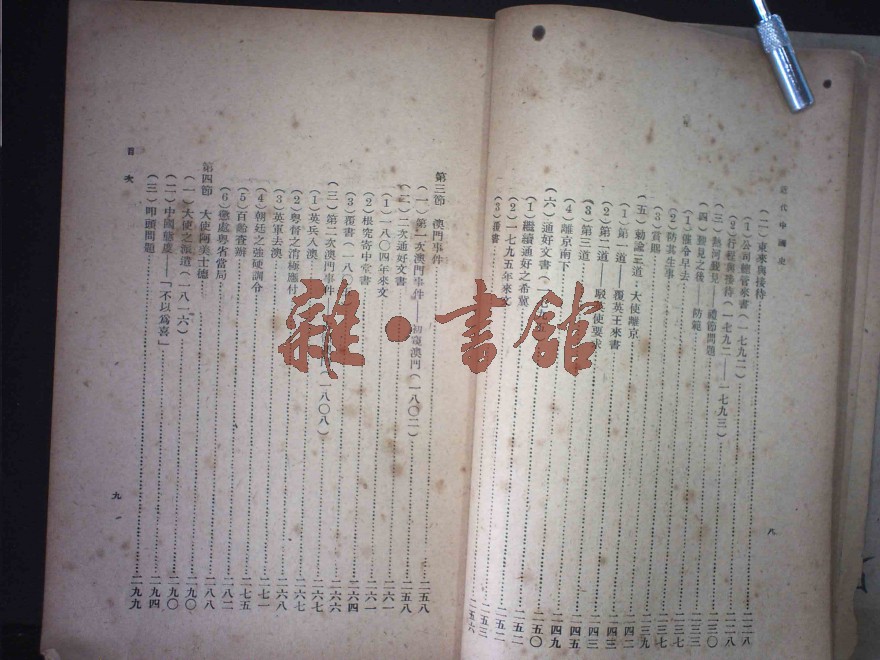 近代中國史
(二)東來與接待……二二八
(1)公司總管來書(一七九二)……二二八
(2)行程與接待(一七九二——一七九三)……二二八
(三)熱河覲見——禮節問題……二三〇
(四)覲見之後——防範……二三三
(1)催令早去……二三七
(2)防其生事……二三七
(3)賞賜……二三九
(五)勅諭三道:大使離京……二四二
(1)第一道——覆英王來書……二四二
(2)第二道——駁英使要求……二四三
(3)第三道……二四三
(4)離京南下……二四五
(六)通好文書……二四九
(1)繼續通好之希冀……二五〇
(2)一七九五年來文……二五二
(3)覆書……二五六
八
第三節 澳門事件……二五八
(一)第一次澳門事件——初窺澳門(一八〇二)……二五八
(二)二次通好文書……二六一
(1)一八〇四年來文……二六一
(2)根究寄中堂書……二六一
(3)覆書(一八〇……二六四
(三)第二次澳門事件——一八〇八)……二六六
(1)英兵入澳……二六七
(2)粵督之消極應付……二六七
(3)英軍去澳……二六八
(4)朝廷之強硬訓令……二七一
(5)百齡查辦……二七五
(6)懲處粵省當局……二八二
第四節 大使阿美士德……二八八
(一)大使之派遣(一八一六)……二九〇
(二)中國態度——「不以爲喜」……二九四
(三)叩頭問題……二九九
目次
九
雜·書舘